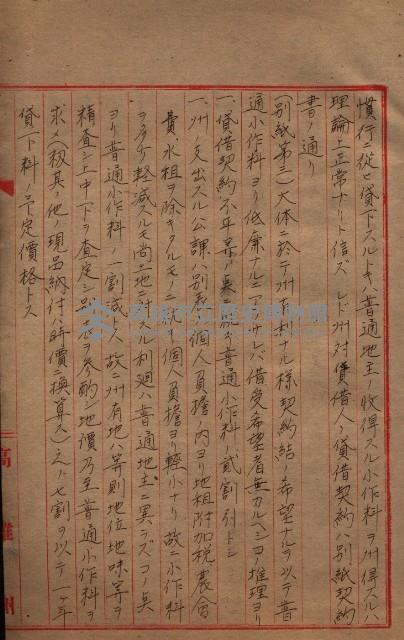 慣行ニ従ヒ貸下スルトキハ普通地主ノ收得スル小作料ヲ州得スルハ
理論上正常ナリト信ズ レド州対賃借人ノ貸借契約ハ別紙契約
書ノ通リ
(別紙第三)大体ニ於テ州有利ナル様契約締結ノ希望ナルヲ以テ普
通小作料ヨリ低廉ナルニアラサレバ借受希望者無カルヘシヨリ推理ヨリ
一、貸借契約ノ不平等ノ点ニ就キ普通小作料ノ貳割引トシ
一、州ノ支出スル公課ハ別表個人負擔ノ内ヨリ地租附加税農会
費、水租ヲ除キタルモノニシテ個人負擔ヨリ輕小ナリ故ニ小作料
ヲ多少軽減スルモ尚土地ニ対スル利廻ハ普通地主ニ異ラズコノ点
ヨリ普通小作料ノ一割減トス故ニ州有地ハ等則地位地味等ヲ
精査シ上中下ヲ査定シ別表ヲ参酌地價乃至普通小作料ヲ
求メ(籾其ノ他ノ現品納付ハ時價ニ換算ス)之ニ七割ヲ以テ一ヶ年
貸下料ノ予定價格トス
高雄州